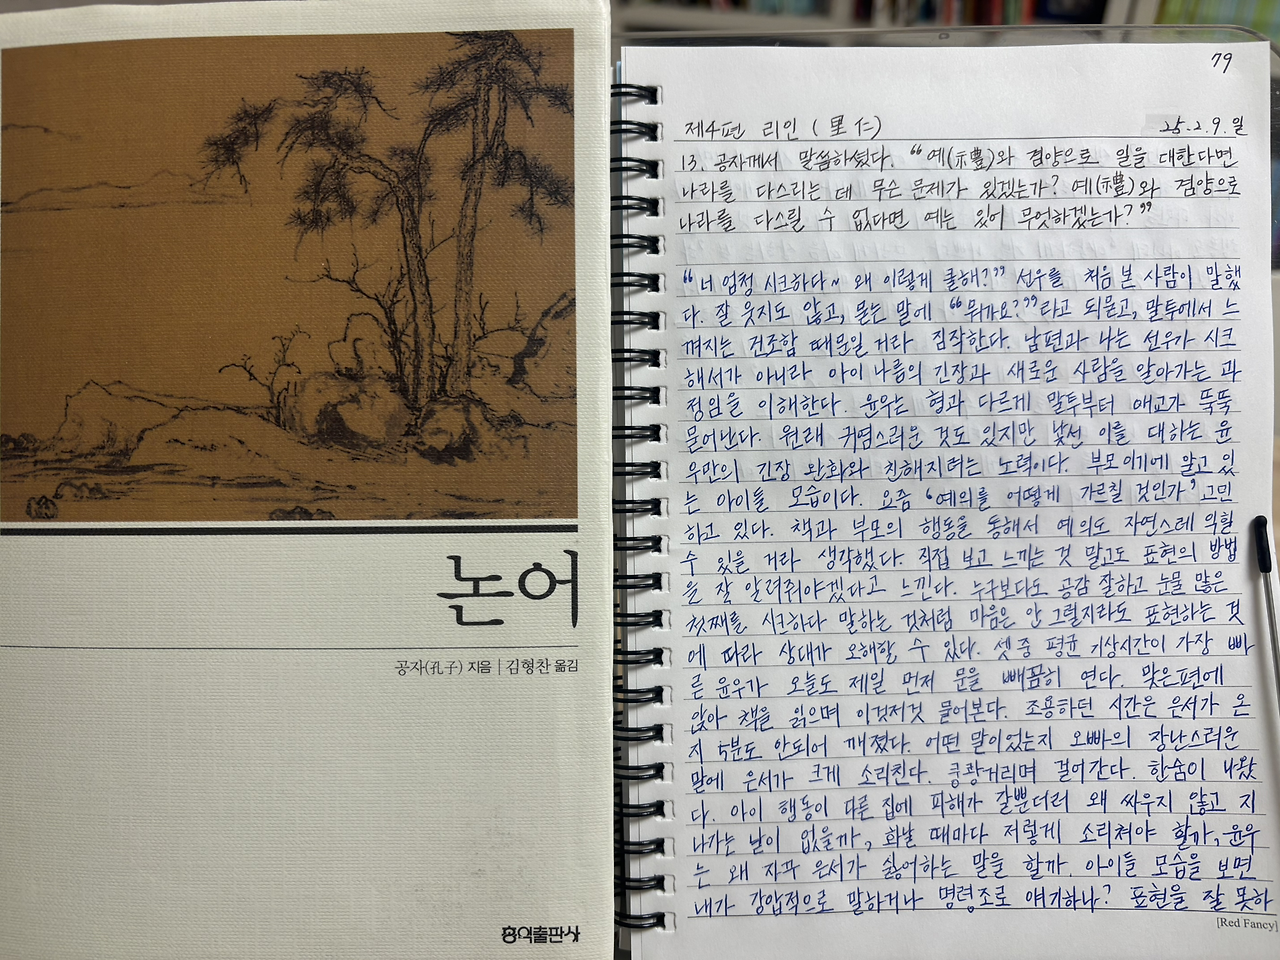 논어
공자(孔子) 지음 | 김형찬 옮김
홍익출판사
79
제4편 리인 (里仁) 25.2.9.일
13. 공자께서 말씀하셨다. “예(禮)와 겸양으로 일을 대한다면
나라를 다스리는 데 무슨 문제가 있겠는가? 예(禮)와 겸양으로
나라를 다스릴 수 없다면 예는 있어 무엇하겠는가?”
“너 엄청 시크하다~ 왜 이렇게 쿨해?” 선우를 처음 본 사람이 말했
다. 잘 웃지도 않고, 묻는 말에 “뭐가요?”라고 되묻고, 말투에서 느
껴지는 건조함 때문일 거라 짐작한다. 남편과 나는 선우가 시크
해서가 아니라 아이 나름의 긴장과 새로운 사람을 알아가는 과
정임을 이해한다. 윤우는 형과 다르게 말투부터 애교가 뚝뚝
묻어난다. 원래 귀염스러운 것도 있지만 낯선 이를 대하는 윤
우만의 긴장 완화와 친해지려는 노력이다. 부모이기에 알고 있
는 아이들 모습이다. 요즘 ‘예의를 어떻게 가르칠 것인가’ 고민
하고 있다. 책과 부모의 행동을 통해서 예의도 자연스레 익힐
수 있을 거라 생각했다. 직접 보고 느끼는 것 말고도 표현의 방법
을 잘 알려줘야겠다고 느낀다. 누구보다도 공감 잘하고 눈물 많은
첫째를 시크하다 말하는 것처럼 마음은 안 그럴지라도 표현하는 것
에 따라 상대가 오해할 수 있다. 셋 중 평균 기상시간이 가장 빠
른 윤우가 오늘도 제일 먼저 문을 빼꼼히 연다. 맞은편에
앉아 책을 읽으며 이것저것 물어본다. 조용하던 시간은 은서가 온
지 5분도 안되어 깨졌다. 어떤 말이었는지 오빠의 장난스러운
말에 은서가 크게 소리친다. 쿵쾅거리며 걸어간다. 한숨이 나왔
다. 아이 행동이 다른 집에 피해가 갈뿐더러 왜 싸우지 않고 지
나가는 날이 없을까, 화날 때마다 저렇게 소리쳐야 할까, 윤우
는 왜 자꾸 은서가 싫어하는 말을 할까. 아이들 모습을 보면
내가 강압적으로 말하거나 명령조로 얘기하나? 표현을 잘 못하
[Red Fancy]